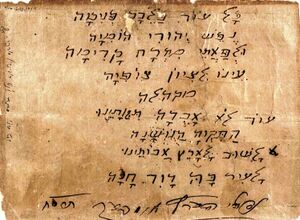 כל עוד בלבב פנימה
נפש יהודי הומיה
ולפאתי מזרח קדימה
עינו לציון צופיה
מקהלה
עוד לא אבדה תקותינו
התקוה הנושנה
לשוב לארץ אבותינו
לעיר בה דוד חנה
נפתלי הרץ